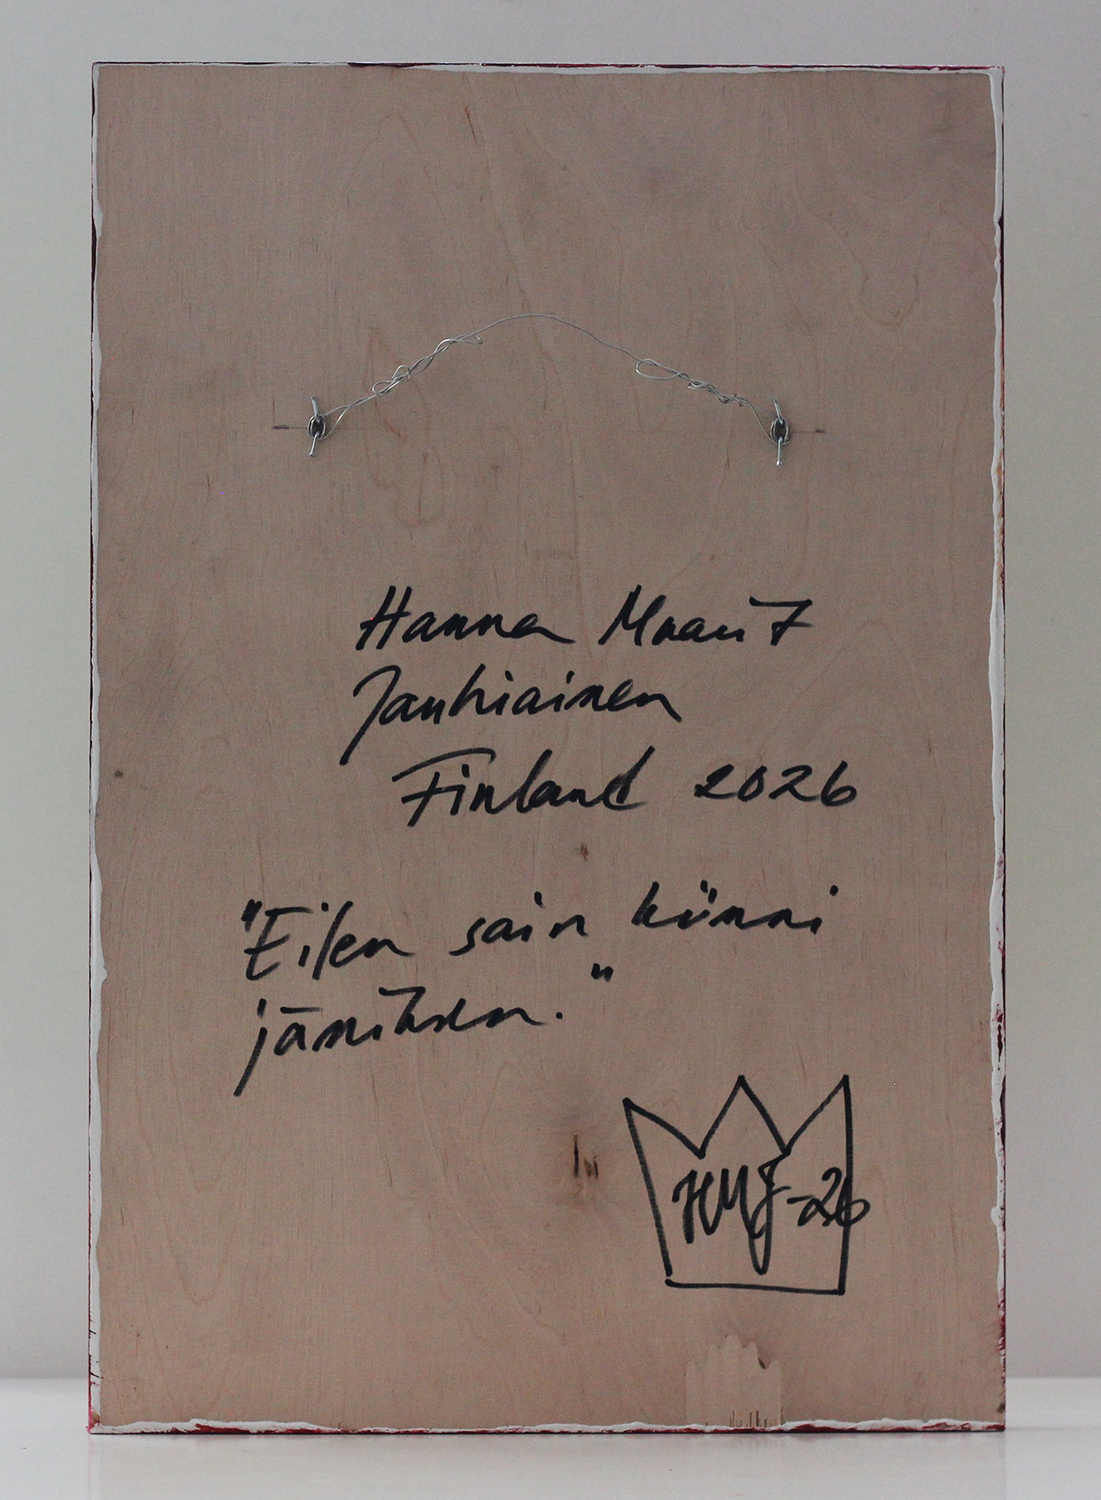 Hanna Maarit
Jauhiainen
Finland 2026
"Eilen sain kiinni
jäniksen."
HMJ-26